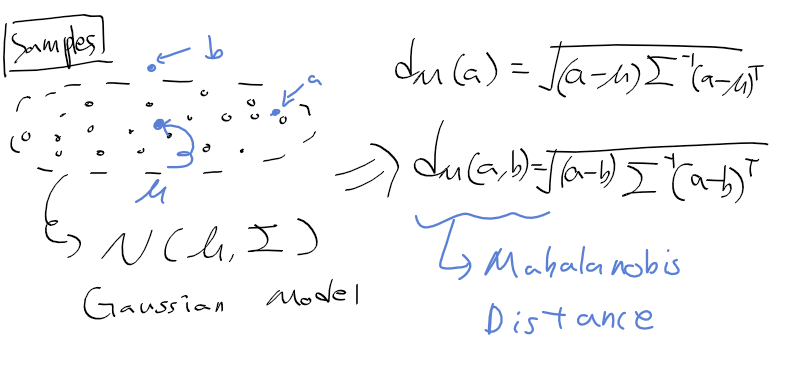 Samples
b
a
μ
N(μ, Σ)
Gaussian Model
d_M(a) = √(a-μ)Σ⁻¹(a-μ)ᵀ
⇒ d_M(a,b)=√(a-b)Σ⁻¹(a-b)ᵀ
Mahalanobis
Distance